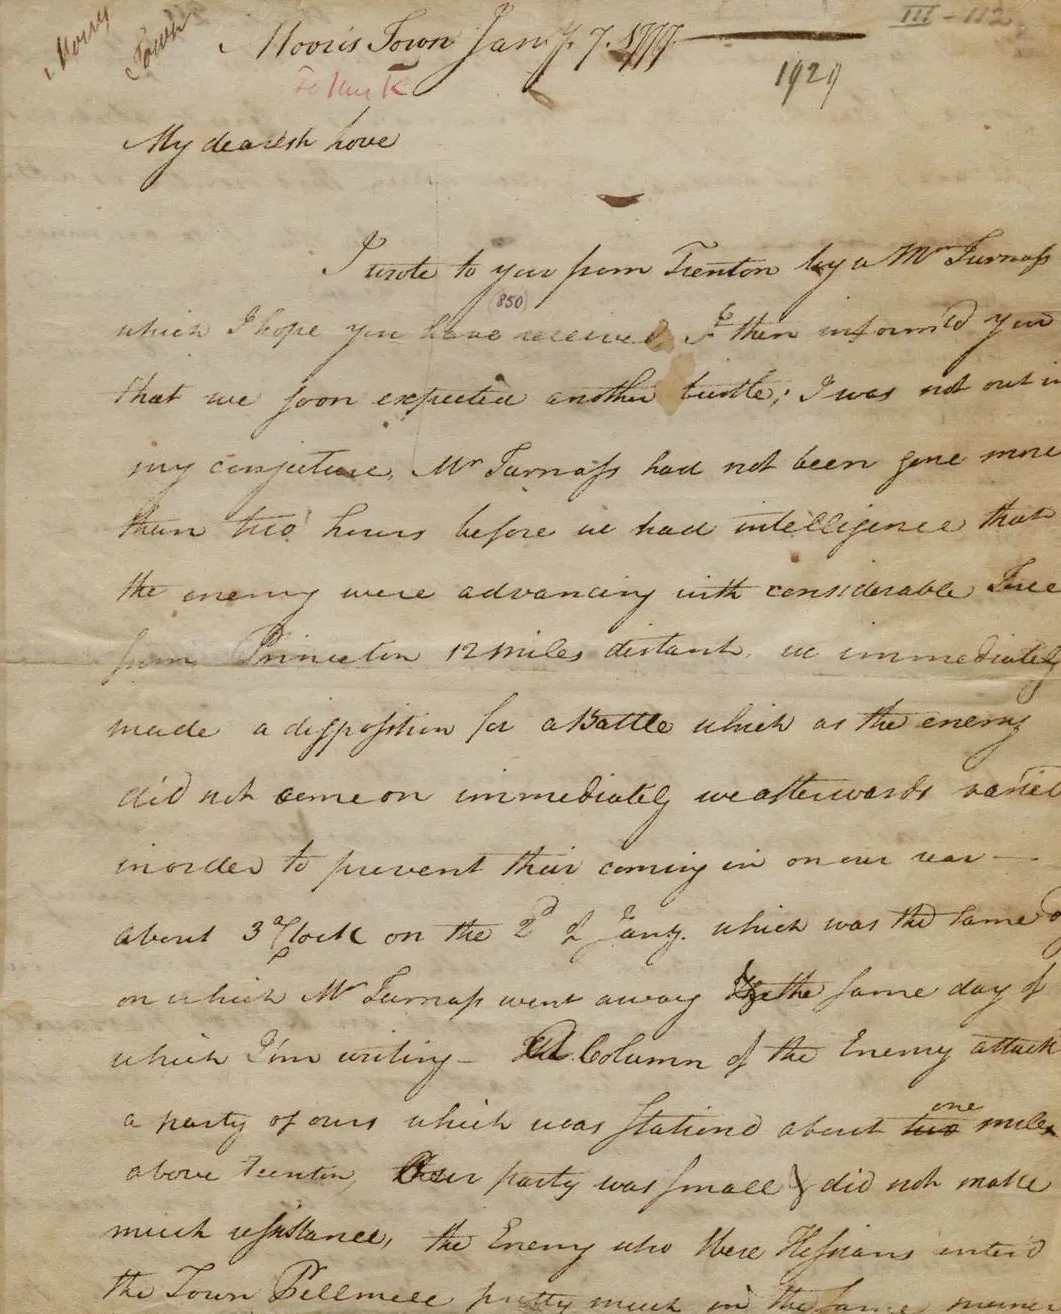 Morris Town
III - 112
Morris Town Jany. 7. 1777.
1929
To Mrs K
My dearest Love
I wrote to you from Trenton by a Mr Turnass
(850)
which I hope you have received, I then inform'd you
that we soon expected another tustle; I was not out in
my conjecture, Mr Turnass had not been gone more
than two hours before we had intelligence that
the enemy were advancing with considerable Force
from Princeton 12 miles distant, we immediately
made a disposition for a Battle which as the enemy
did not come on immediately we afterwards varied
in order to prevent their coming in on our rear —
about 3 oClock on the 2d of Jany. which was the same
on which Mr Turnass went away the same day of
which I'm writing – A Column of the Enemy attack
one
a party of ours which was station'd about two miles
above Trenton, Our party was small & did not make
much resistance, the Enemy who were Hessians enter'd
the Town Pellmell pretty much in the same